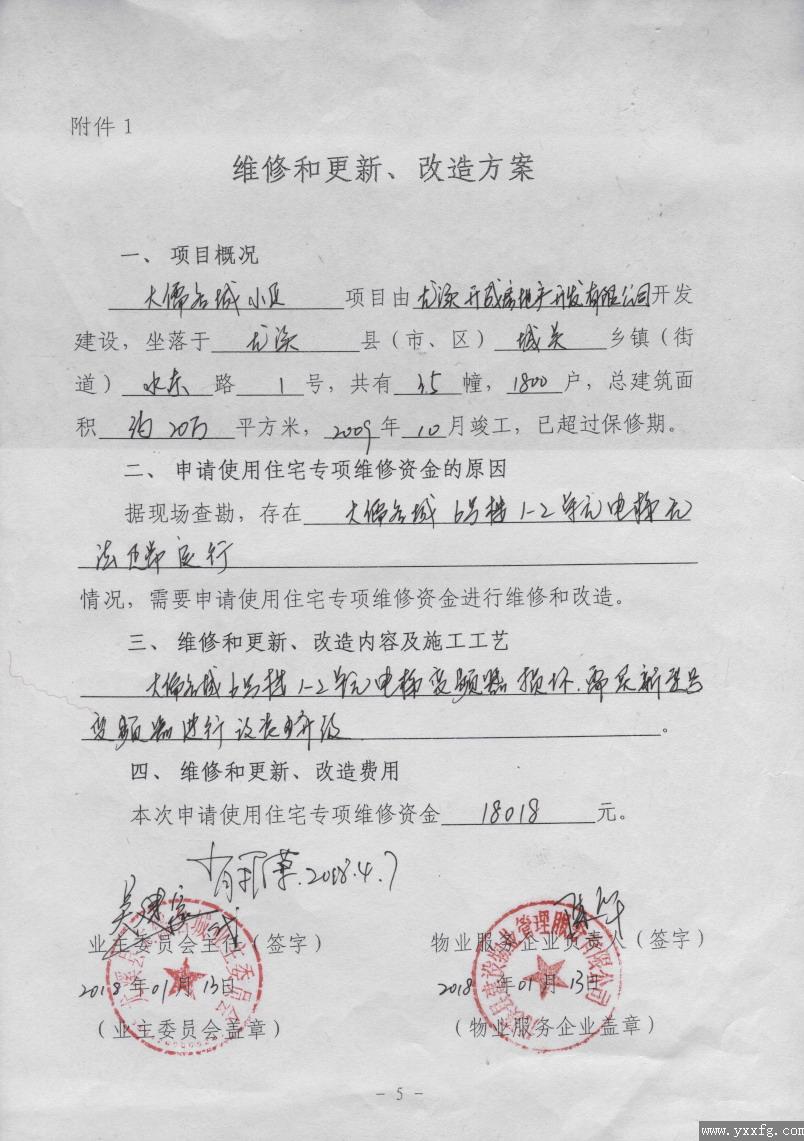 附件1
维修和更新、改造方案
一、项目概况
大儒名城小区 项目由尤溪开成房地产开发有限公司开发
建设，坐落于 尤溪 县（市、区） 城关 乡镇（街
道） 水东 路 1 号，共有 35 幢，1800 户，总建筑面
积 约20万 平方米，2009年 10 月竣工，已超过保修期。
二、申请使用住宅专项维修资金的原因
据现场查勘，存在 大儒名城6号楼1-2单元电梯无
法正常运行
情况，需要申请使用住宅专项维修资金进行维修和改造。
三、维修和更新、改造内容及施工工艺
大儒名城6号楼1-2单元电梯变频器损坏．购买新型号
变频器进行 。
四、维修和更新、改造费用
本次申请使用住宅专项维修资金 18018 元。
2018.4.7
业主委员会主任（签字） 物业服务企业负责人（签字）
2018年01月13日 2018年01月13日
（业主委员会盖章） （物业服务企业盖章）
- 5 -
www.yxxfg.com